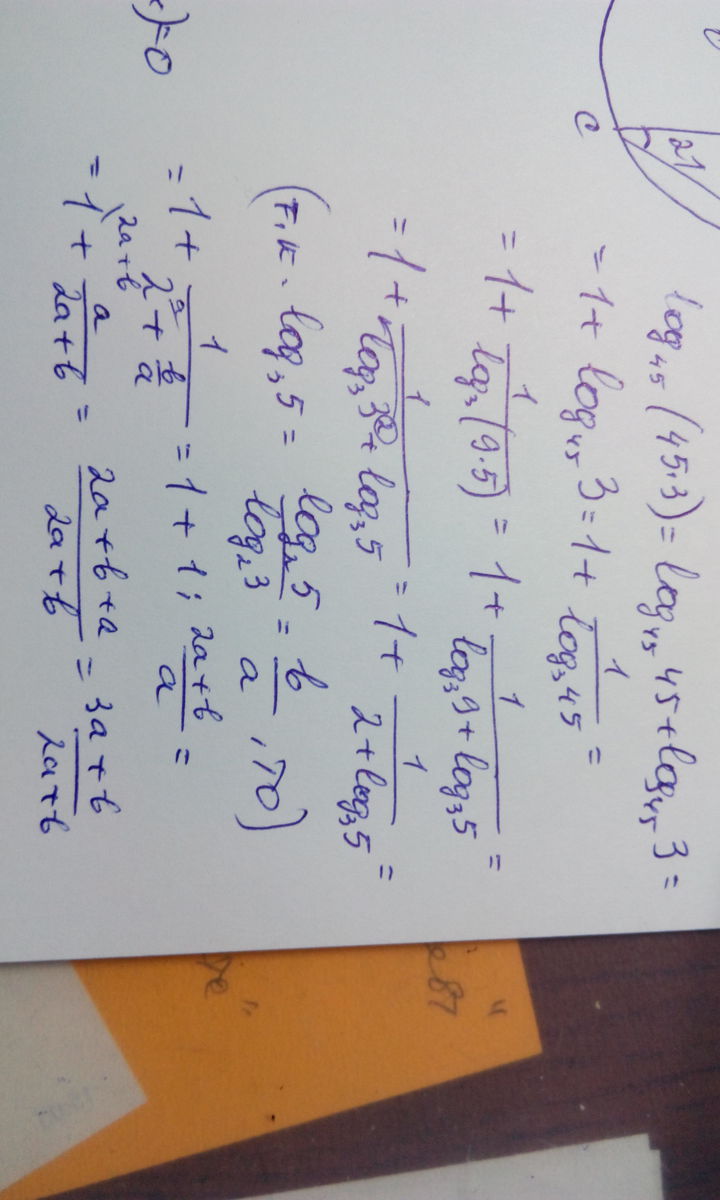 log₄₅(45·3) = log₄₅45 + log₄₅3 =
= 1 + log₄₅3 = 1 + 1/log₃45 =
= 1 + 1/log₃(9·5) = 1 + 1/(log₃9 + log₃5) =
= 1 + 1/(log₃3² + log₃5) = 1 + 1/(2 + log₃5) =
(т.к. log₃5 = log₂5/log₂3 = b/a, то)
= 1 + 1/(2^a + b/a) = 1 + 1 : (2a+b)/a =
= 1^(2a+b) + a/(2a+b) = (2a+b+a)/(2a+b) = (3a+b)/(2a+b)
)=0
c
21